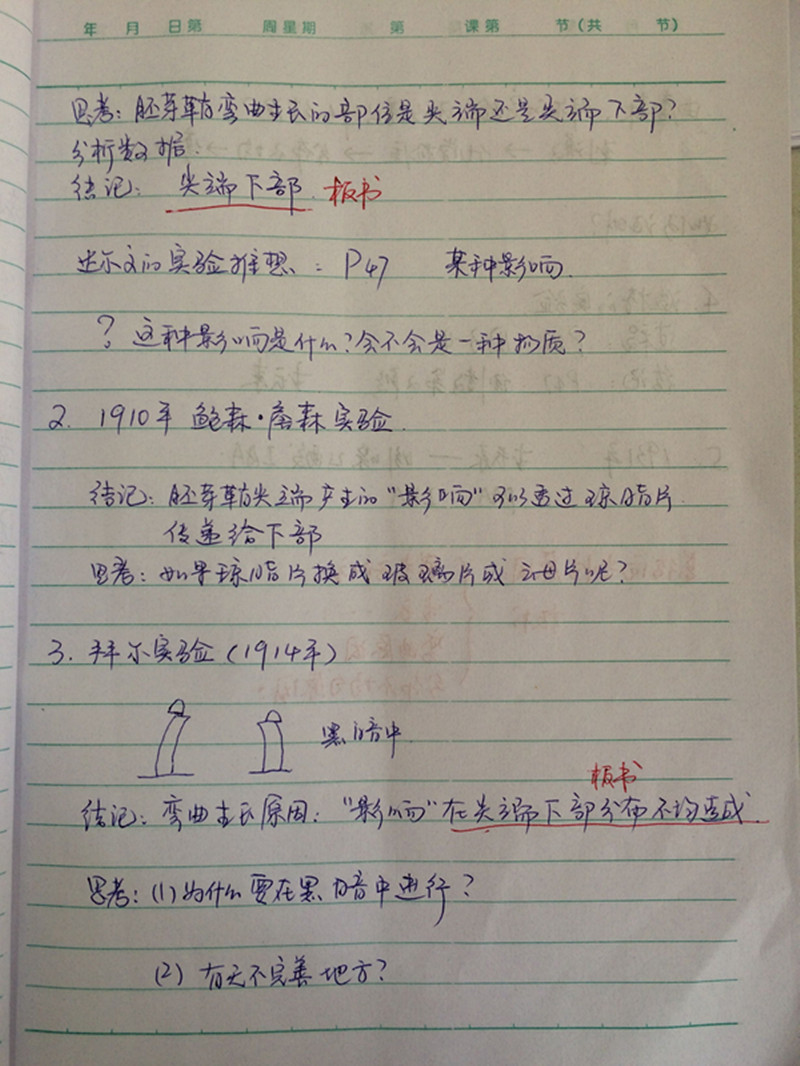 年 月 日第 周星期 第 课第 节(共 节)
思考: 胚芽鞘弯曲生长的部位是尖端还是尖端下部?
分析数据:
结论: 尖端下部. 板书
达尔文的实验推想: P47 某种影响.
? 这种影响是什么?会不会是一种物质?
2. 1910年 鲍森·詹森实验.
结论: 胚芽鞘尖端产生的"影响"可以透过琼脂片
传递给下部
思考: 如果琼脂片换成玻璃片或云母片呢?
3. 拜尔实验(1914年)
黑暗中
板书
结论: 弯曲生长原因: "影响"在尖端下部分布不均造成.
思考: (1) 为什么要在黑暗中进行?
(2) 有无不完善地方?